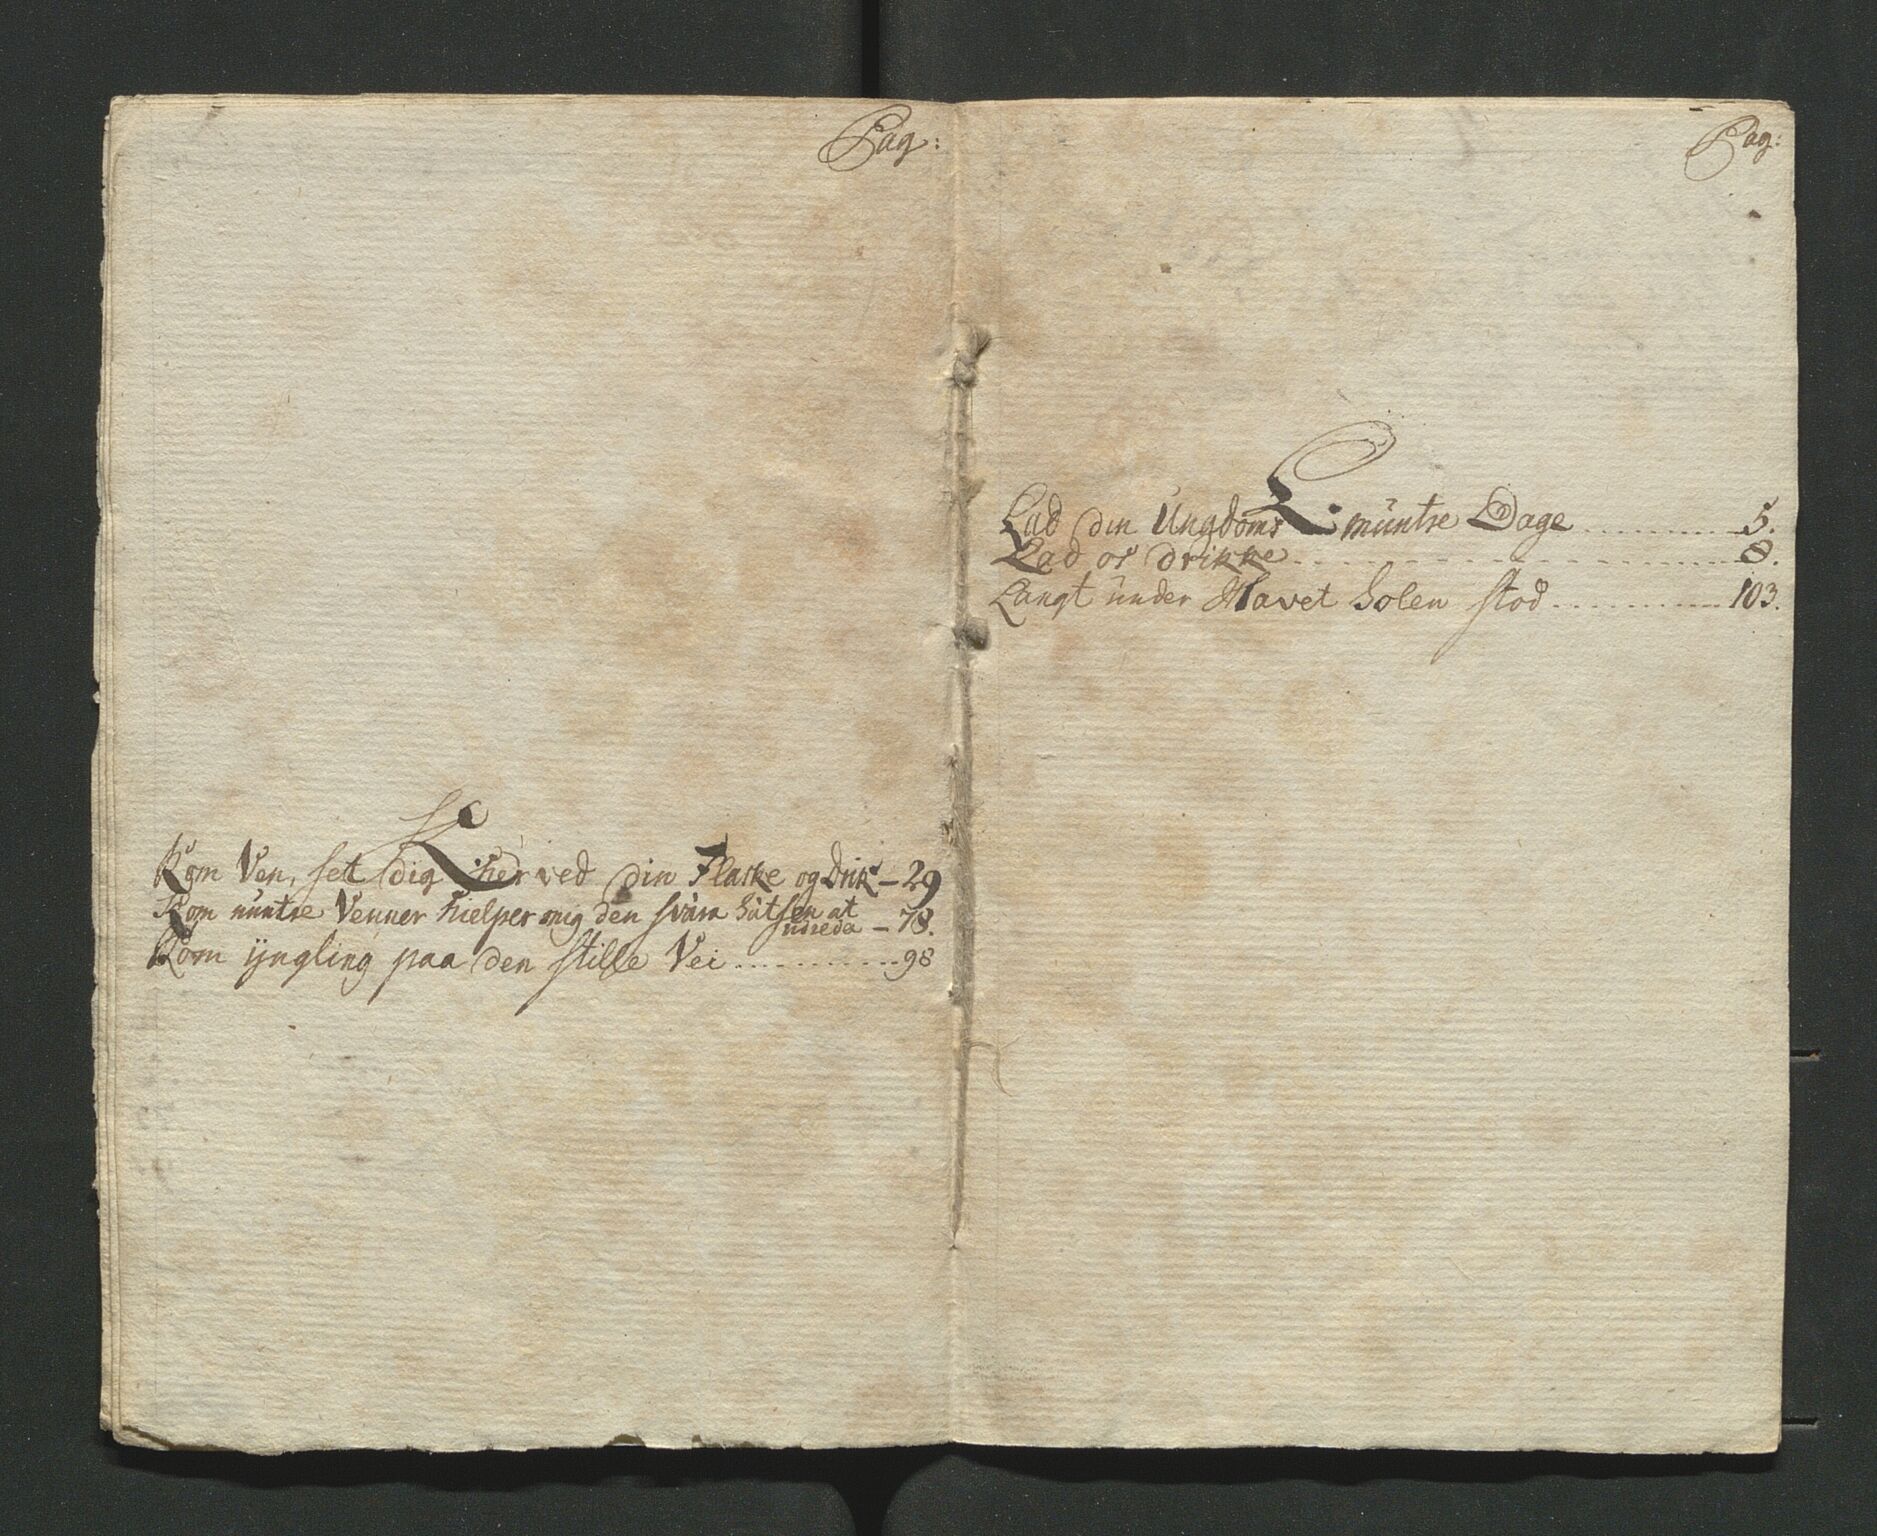 Pag:
K.
Kom Ven, sett dig her ved din Flaske og Drik – 29
Kom muntre Venner hielper mig den svàra hàtsen at
udreda – 78.
Kom ÿngling paa den stille Vei ........... 98
Pag:
L.
Lad din Ungdoms müntre Dage ........... 5.
Lad os drikke ........... 8.
Langt ünder Havet Solen stod ........... 103.